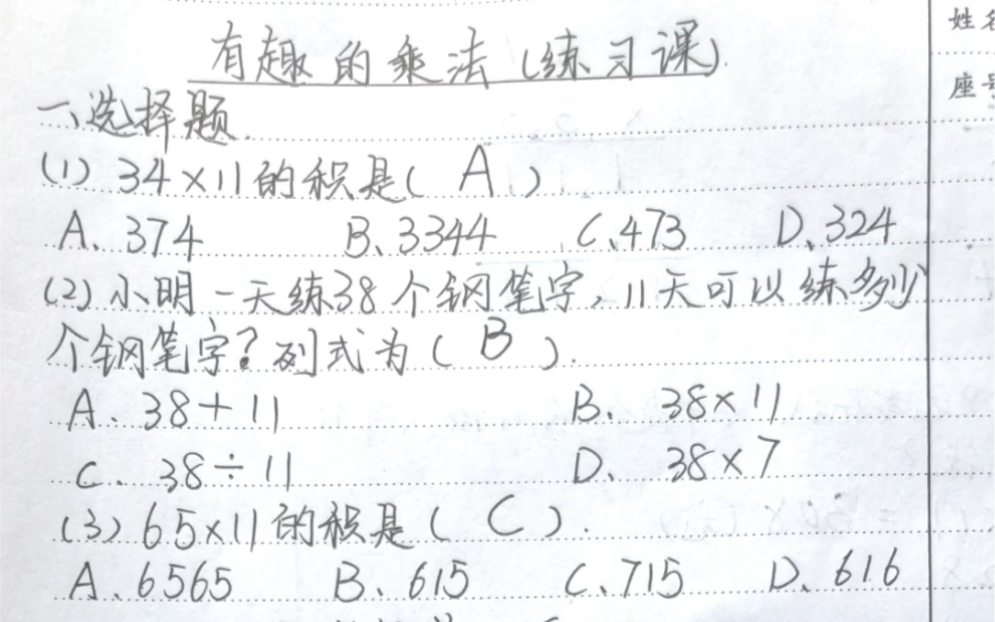 有趣的乘法(练习课).
姓名
座号
一、选择题.
(1) 34×11的积是( A )
A、374 B、3344 C、473 D、324
(2)小明一天练38个钢笔字,11天可以练多少
个钢笔字?列式为( B ).
A、38+11 B、38×11
C、38÷11 D、38×7
(3) 65×11的积是( C ).
A、6565 B、615 C、715 D、616